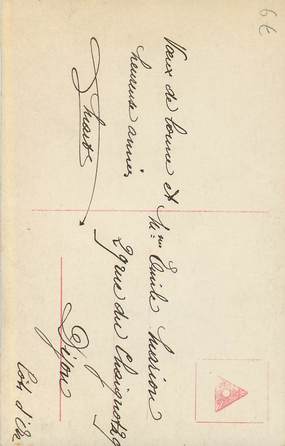 Voeux de bonne et
heureuse année
Mme Emile
29 rue du
Dijon
Côte d'Or
6€